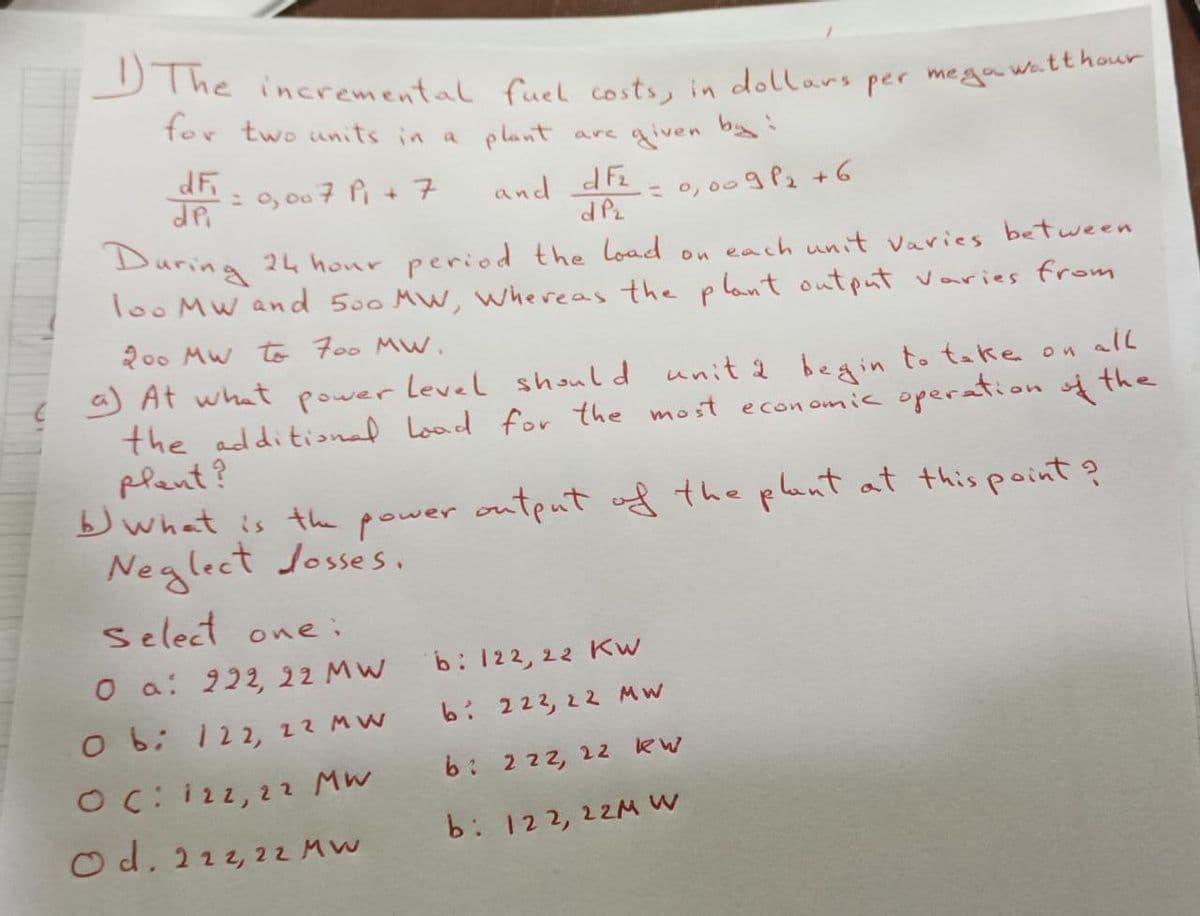 1) The incremental fuel costs, in dollars per megawatthour
for two units in a plant are given by:
dF1/dP1 = 0,007 P1 + 7 and dF2/dP2 = 0,009P2 + 6
During 24 hour period the load on each unit varies between
100 MW and 500 MW, Whereas the plant output varies from
200 MW to 700 MW.
a) At what power Level should unit 2 begin to take on all
the additional load for the most economic operation of the
plant?
b) what is the power output of the plant at this point?
Neglect losses.
Select one:
O a: 222,22 MW b: 122,22 KW
O b: 122,22 MW b: 222,22 MW
O C: 122,22 MW b: 222,22 kW
O d. 222,22 MW b: 122,22MW